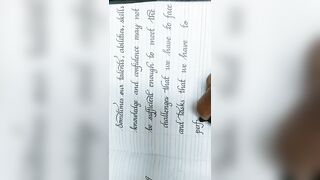 Sometimes our talents, abilities, skills
knowledge and confidence may not
be sufficient enough to meet the
challenges that we have to face
and tasks that we have to
perf